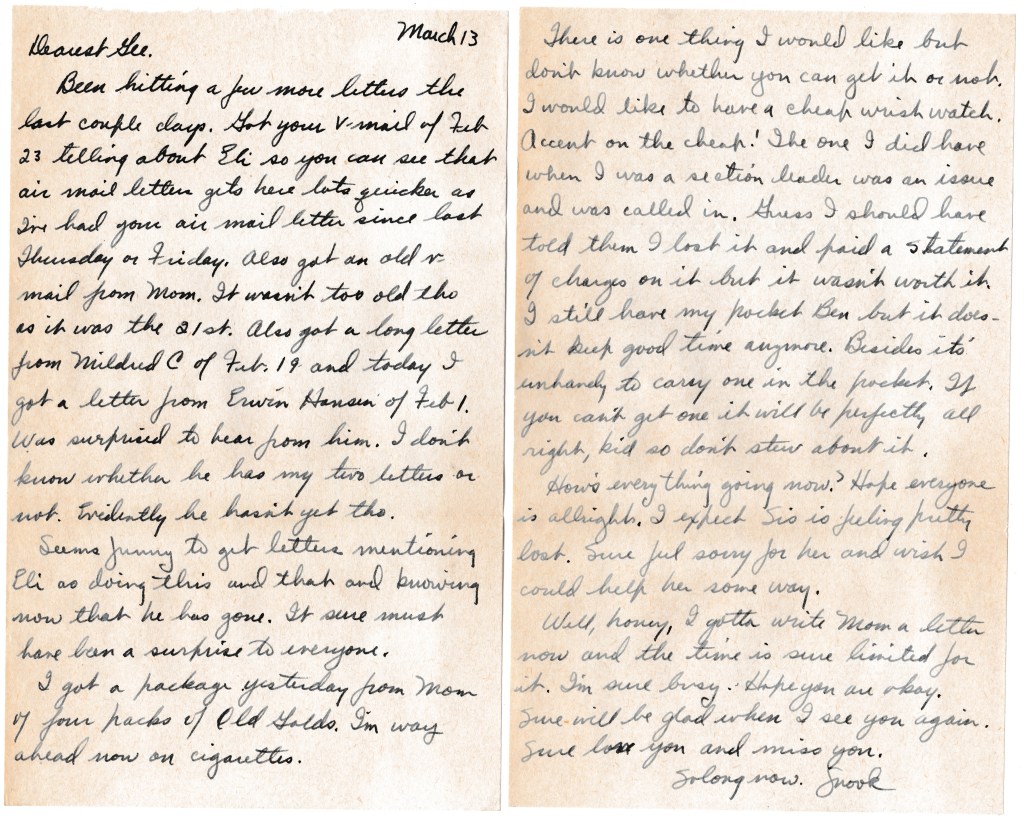 March 13
Dearest Gee.
Been hitting a few more letters the
last couple days. Got your V-mail of Feb
23 telling about Eli so you can see that
air mail letter gets here lots quicker as
I've had your air mail letter since last
Thursday or Friday. Also got an old v-
mail from Mom. It wasn't too old tho
as it was the 21st. Also got a long letter
from Mildred C of Feb. 19 and today I
got a letter from Erwin Hansen of Feb 1.
Was surprised to hear from him. I don't
know whether he has my two letters or
not. Evidently he hasn't yet tho.
Seems funny to get letters mentioning
Eli as doing this and that and knowing
now that he has gone. It sure must
have been a surprise to everyone.
I got a package yesterday from Mom
of four packs of Old Golds. I'm way
ahead now on cigarettes.
There is one thing I would like but
don't know whether you can get it or not.
I would like to have a cheap wrist watch.
Accent on the cheap! The one I did have
when I was a section leader was an issue
and was called in. Guess I should have
told them I lost it and paid a statement
of charges on it but it wasn't worth it.
I still have my pocket Ben but it does-
n't keep good time anymore. Besides it's
unhandy to carry one in the pocket. If
you can't get one it will be perfectly all
right, kid so don't stew about it.
How's everything going now? Hope everyone
is allright. I expect Sis is feeling pretty
lost. Sure feel sorry for her and wish I
could help her some way.
Well, honey, I gotta write Mom a letter
now and the time is sure limited for
it. I'm sure busy. Hope you are okay.
Sure will be glad when I see you again.
Sure love you and miss you.
So long now. Snook